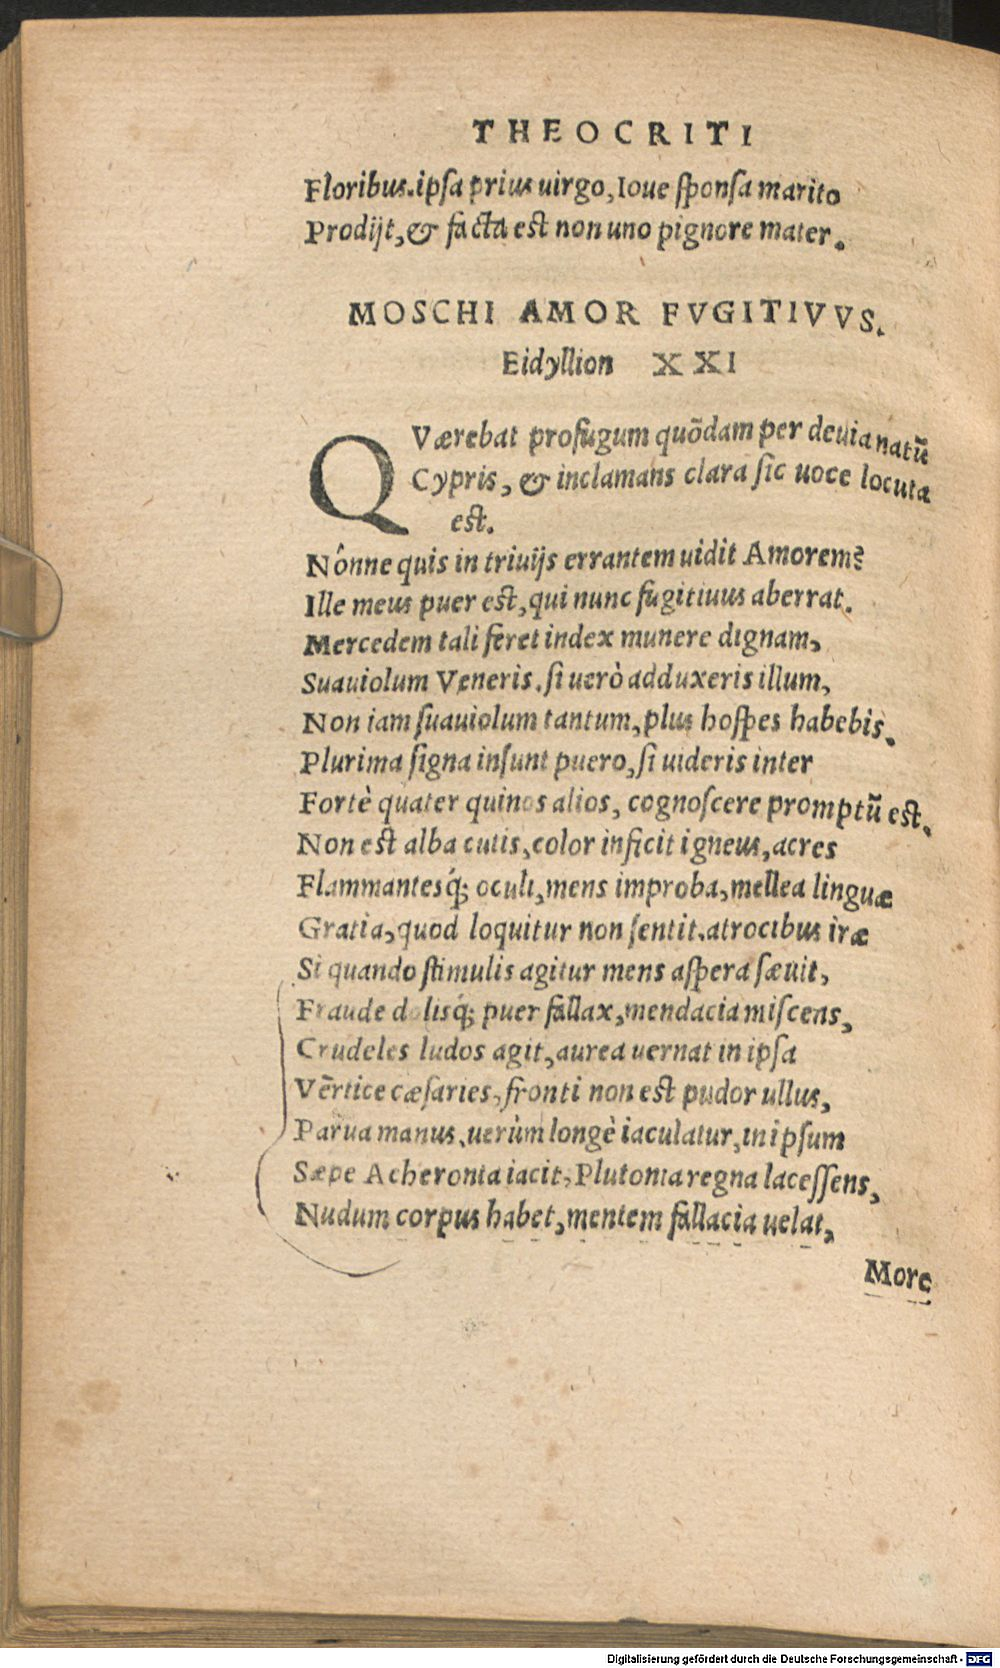 THEOCRITI
Floribus. ipsa prius uirgo, Ioue sponsa marito
Prodijt, & facta est non uno pignore mater.
MOSCHI AMOR FVGITIVVS.
Eidyllion XXI
QVærebat profugum quõdam per deuia natũ
Cypris, & inclamans clara sic uoce locuta
est.
Nônne quis in triuijs errantem uidit Amorem?
Ille meus puer est, qui nunc fugitiuus aberrat.
Mercedem tali feret index munere dignam,
Suauiolum Veneris. si uerò adduxeris illum,
Non iam suauiolum tantum, plus hospes habebis.
Plurima signa insunt puero, si uideris inter
Fortè quater quinos alios, cognoscere promptũ est.
Non est alba cutis, color inficit igneus, acres
Flammantesq́; oculi, mens improba, mellea linguæ
Gratia, quod loquitur non sentit. atrocibus iræ
Si quando stimulis agitur mens aspera sæuit,
Fraude dolisq́; puer fallax, mendacia miscens,
Crudeles ludos agit, aurea uernat in ipsa
Vẽrtice cæsaries, fronti non est pudor ullus,
Parua manus, uerùm longè iaculatur, in ipsum
Sæpe Acheronta iacit, Plutonia regna lacessens,
Nudum corpus habet, mentem fallacia uelat,
More
Digitalisierung gefördert durch die Deutsche Forschungsgemeinschaft - DFG